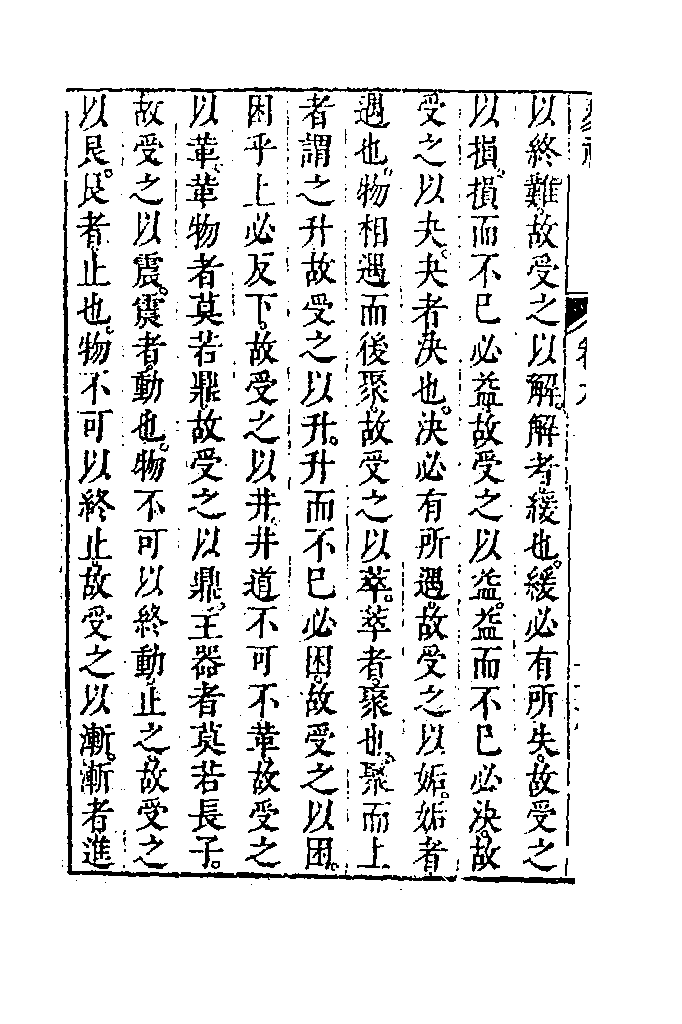 以終難。故受之以解。解者。緩也。緩必有所失。故受之
以損。損而不已必益。故受之以益。益而不已必決。故
受之以夬。夬者決也。決必有所遇。故受之以姤。姤者
遇也。物相遇而後聚。故受之以萃。萃者。聚也。聚而上
者謂之升。故受之以升。升而不已必困。故受之以困。
困乎上必反下。故受之以井。井道不可不革。故受之
以革。革物者莫若鼎。故受之以鼎。主器者莫若長子。
故受之以震。震者。動也。物不可以終動。止之。故受之
以艮。艮者。止也。物不可以終止。故受之以漸。漸者進